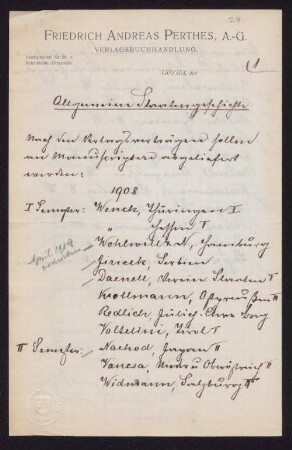 24
FRIEDRICH ANDREAS PERTHES, A.-G.
VERLAGSBUCHHANDLUNG.
GOTHA, den
1
Allgemeine Staatengeschichte
Nach den Verlagsverträgen sollen
an Manuscripten abgeliefert
werden:
1908
I Semester: Wenck, Thüringen I
" Hessen I
Wohlwill, Hamburg
April 1909
Jireček, Serbien
Daenell, Verein. Staaten I
Krollmann, Ostpreußen II
Redlich, Jülich-Cleve Berg
Voltelini, Tirol I
II Semester: Nachod, Japan II
Vancsa, Nieder u Oberöstreich II
Widmann, Salzburg II